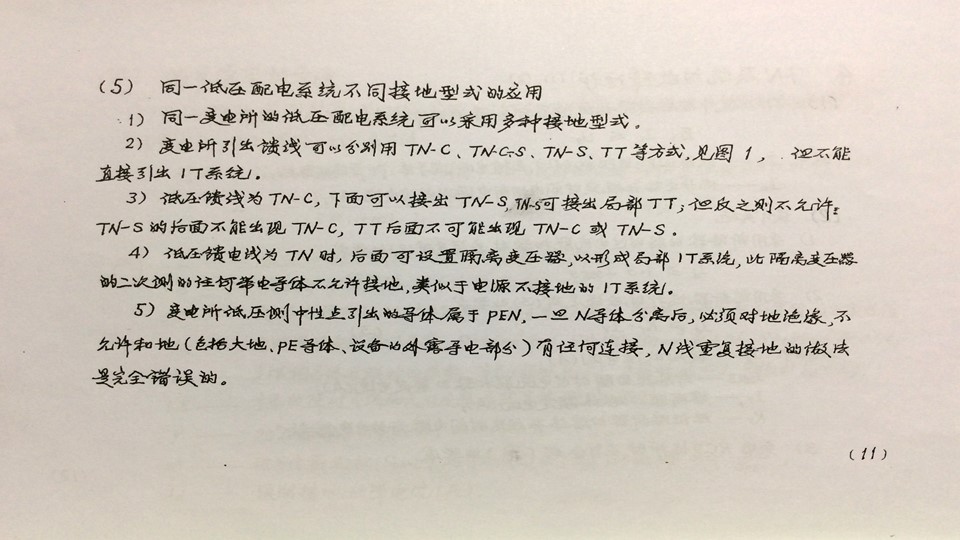 (5) 同一低压配电系统不同接地型式的应用
1) 同一变电所的低压配电系统可以采用多种接地型式。
2) 变电所引出馈线可以分别用 TN-C、TN-C-S、TN-S、TT等方式,见图1, 但不能
直接引出IT系统。
3) 低压馈线为TN-C,下面可以接出TN-S,TN-S可接出局部TT;但反之则不允许:
TN-S的后面不能出现TN-C,TT后面不可能出现TN-C或TN-S。
4) 低压馈电线为TN时,后面可设置隔离变压器,以形成局部IT系统,此隔离变压器
的二次侧的任何带电导体不允许接地,类似于电源不接地的IT系统。
5) 变电所低压侧中性点引出的导体属于PEN,一旦N导体分离后,必须对地绝缘,不
允许和地(包括大地、PE导体、设备的外露导电部分)有任何连接,N线重复接地的做法
是完全错误的。
(11)